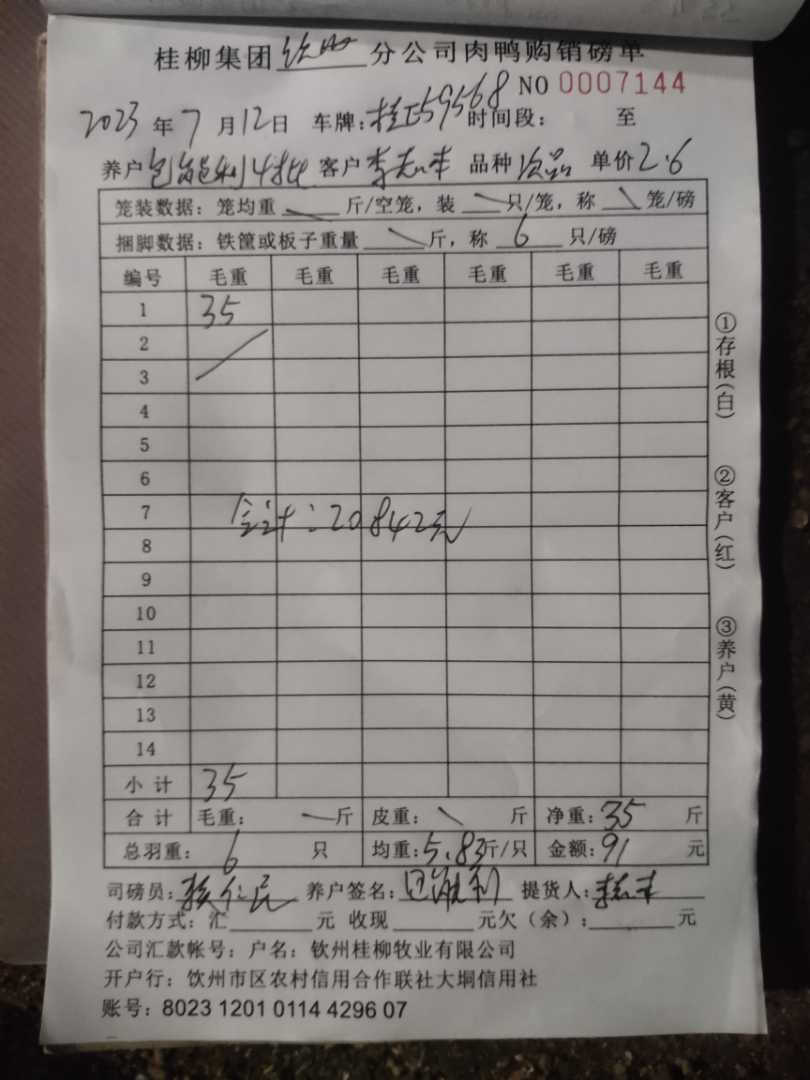 桂柳集团钦州分公司肉鸭购销磅单
NO 0007144
2023年7月12日 车牌:桂 59568 时间段: 至
养户 利4批 客户 李 丰 品种 次品 单价2.6
笼装数据:笼均重 斤/空笼,装 只/笼,称 笼/磅
捆脚数据:铁筐或板子重量 斤,称 6 只/磅
编号 毛重 毛重 毛重 毛重 毛重 毛重
1 35
2
3
4
5
6
7
合计:20842元
8
9
10
11
12
13
14
小计 35
合计 毛重: 斤 皮重: 斤 净重:35 斤
总羽重: 6 只 均重:5.83斤/只 金额:91 元
司磅员: 民 养户签名: 利 提货人:李 丰
付款方式:汇 元 收现 元欠(余): 元
公司汇款帐号:户名:钦州桂柳牧业有限公司
开户行:饮州市区农村信用合作联社大垌信用社
账号:8023 1201 0114 4296 07
①存根(白)
②客户(红)
③养户(黄)